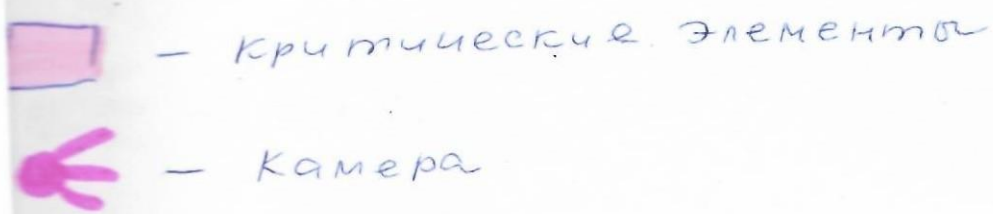 - критические элементы
- Камера